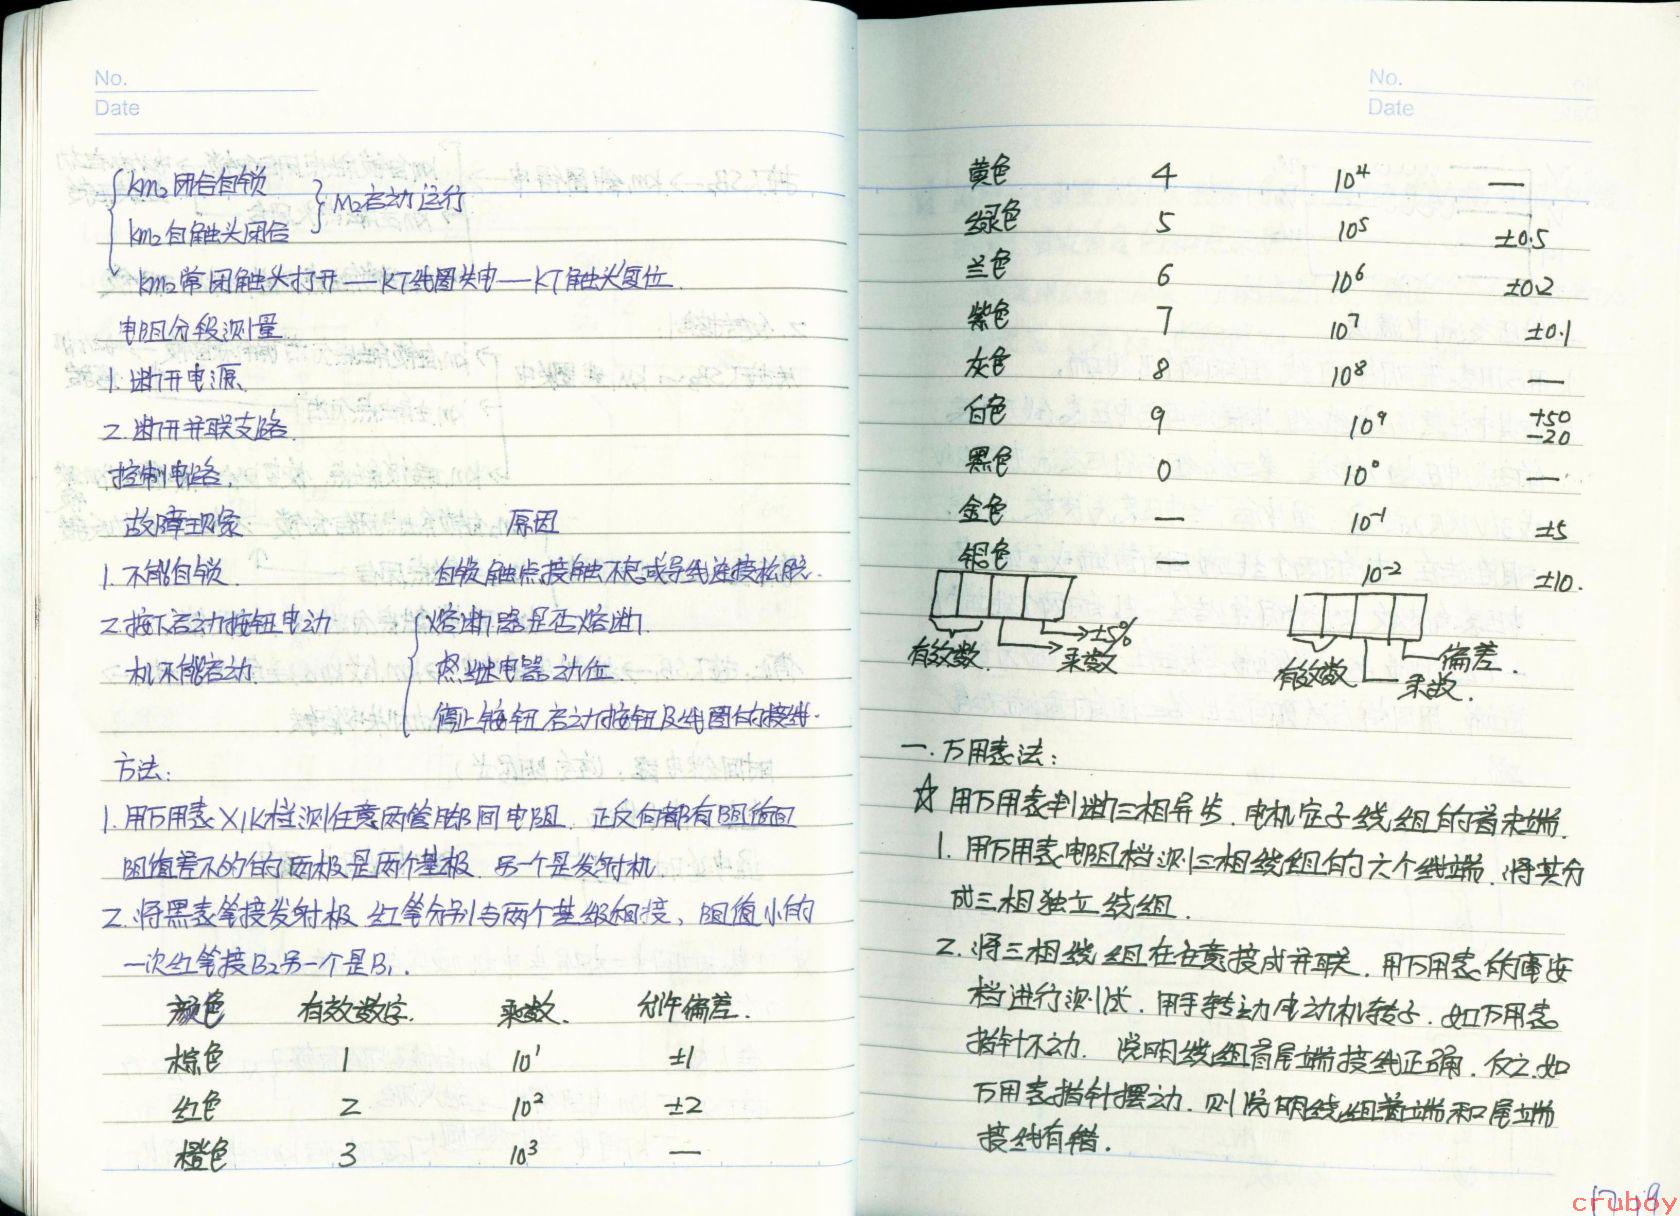 No.
Date
km₂闭合自锁
km₂自触头闭合
M₂启动运行
km₂常闭触头打开—KT线圈失电—KT触头复位.
电阻分段测量
1. 断开电源、
2. 断开并联支路.
控制电路.
故障现象 原因
1. 不能自锁. 自锁触点接触不良或导线连接松脱.
2. 按下启动按钮电动 熔断器是否熔断.
机不能启动. 热继电器动位.
停止按钮.启动按钮及线圈的接线.
方法:
1. 用万用表X1K档测任意两管脚间电阻. 正反向都有阻值且
阻值差不多的两极是两个基极. 另一个是发射机.
2. 将黑表笔接发射极 红笔分别与两个基级相接、阻值小的
一次红笔接B₂另一个是B₁.
颜色 有效数字. 乘数. 允许偏差.
棕色 1 10¹ ±1
红色 2 10² ±2
橙色 3 10³ —
No.
Date
黄色 4 10⁴ —
绿色 5 10⁵ ±0.5
兰色 6 10⁶ ±0.2
紫色 7 10⁷ ±0.1
灰色 8 10⁸ —
白色 9 10⁹ +50 -20
黑色 0 10⁰ —
金色 — 10⁻¹ ±5
银色 — 10⁻² ±10.
有效数. →乘数 →±5%
有效数 乘数. 偏差.
一. 万用表法:
☆ 用万用表判断三相异步.电机定子线组的首末端.
1. 用万用表电阻档测三相绕组的六个线端.将其分
成三相独立绕组.
2. 将三相绕组在任意接成并联. 用万用表的毫安
档进行测试. 用手转动电动机转子. 如万用表
指针不动. 说明绕组首尾端接线正确. 反之.如
万用表指针摆动. 则说明绕组首端和尾端
接线有错.
cruboy